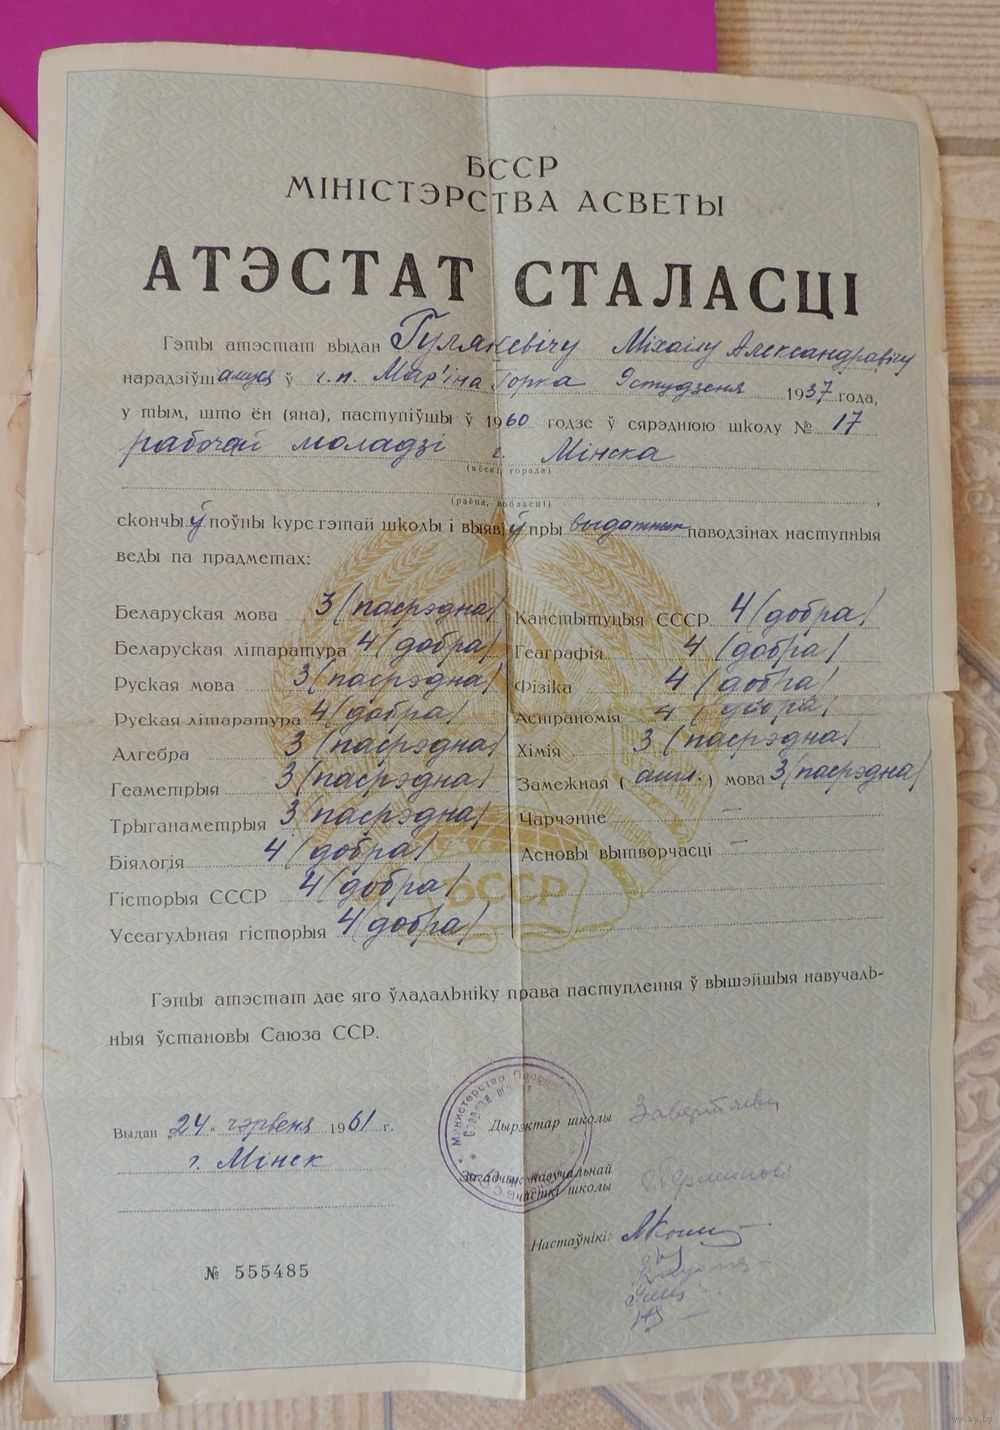 БССР
МІНІСТЭРСТВА АСВЕТЫ
АТЭСТАТ СТАЛАСЦІ
Гэты атэстат выдан Гулякевічу Міхаілу Александравічу
нарадзіўшамуся ў г.п. Мар'іна Горка 9 студзеня 1937 года,
у тым, што ён (яна), паступіўшы ў 1960 годзе ў сярэднюю школу № 17
рабочай моладзі г. Мінска
(вёскі, горада)
(раёна, вобласці)
скончыў поўны курс гэтай школы і выявіў пры выдатных паводзінах наступныя
веды па прадметах:
Беларуская мова 3 (пасрэдна)
Беларуская літаратура 4 (добра)
Руская мова 3 (пасрэдна)
Руская літаратура 4 (добра)
Алгебра 3 (пасрэдна)
Геаметрыя 3 (пасрэдна)
Трыганаметрыя 3 (пасрэдна)
Біялогія 4 (добра)
Гісторыя СССР 4 (добра)
Усеагульная гісторыя 4 (добра)
Канстытуцыя СССР 4 (добра)
Геаграфія 4 (добра)
Фізіка 4 (добра)
Астраномія 4 (добра)
Хімія 3 (пасрэдна)
Замежная (англ.) мова 3 (пасрэдна)
Чарчэнне —
Асновы вытворчасці —
БССР
Гэты атэстат дае яго ўладальніку права паступлення ў вышэйшыя навучаль-
ныя ўстановы Саюза ССР.
Выдан „24" чэрвеня 1961 г.
г. Мінск
№ 555485
Министерство
Средняя
Дырэктар школы
Загадчык навучальнай
часткі школы
Настаўнікі:
ww.ay.by